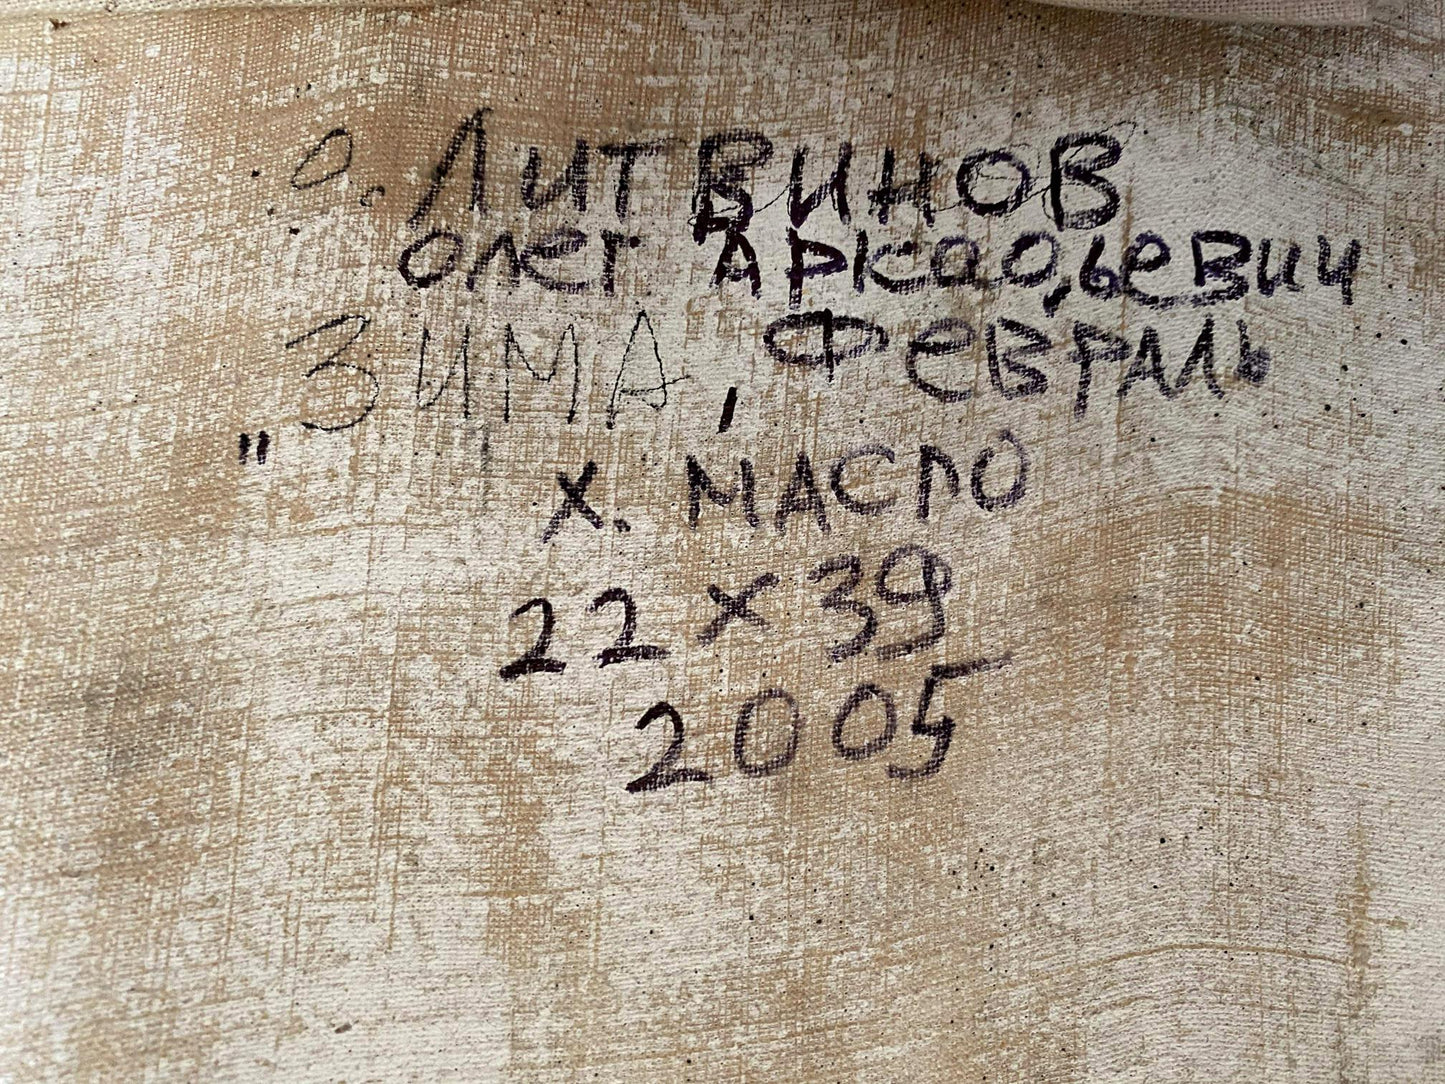 О. Литвинов
Олег Аркадьевич
„Зима, Февраль
х. масло
22 х 39
2005